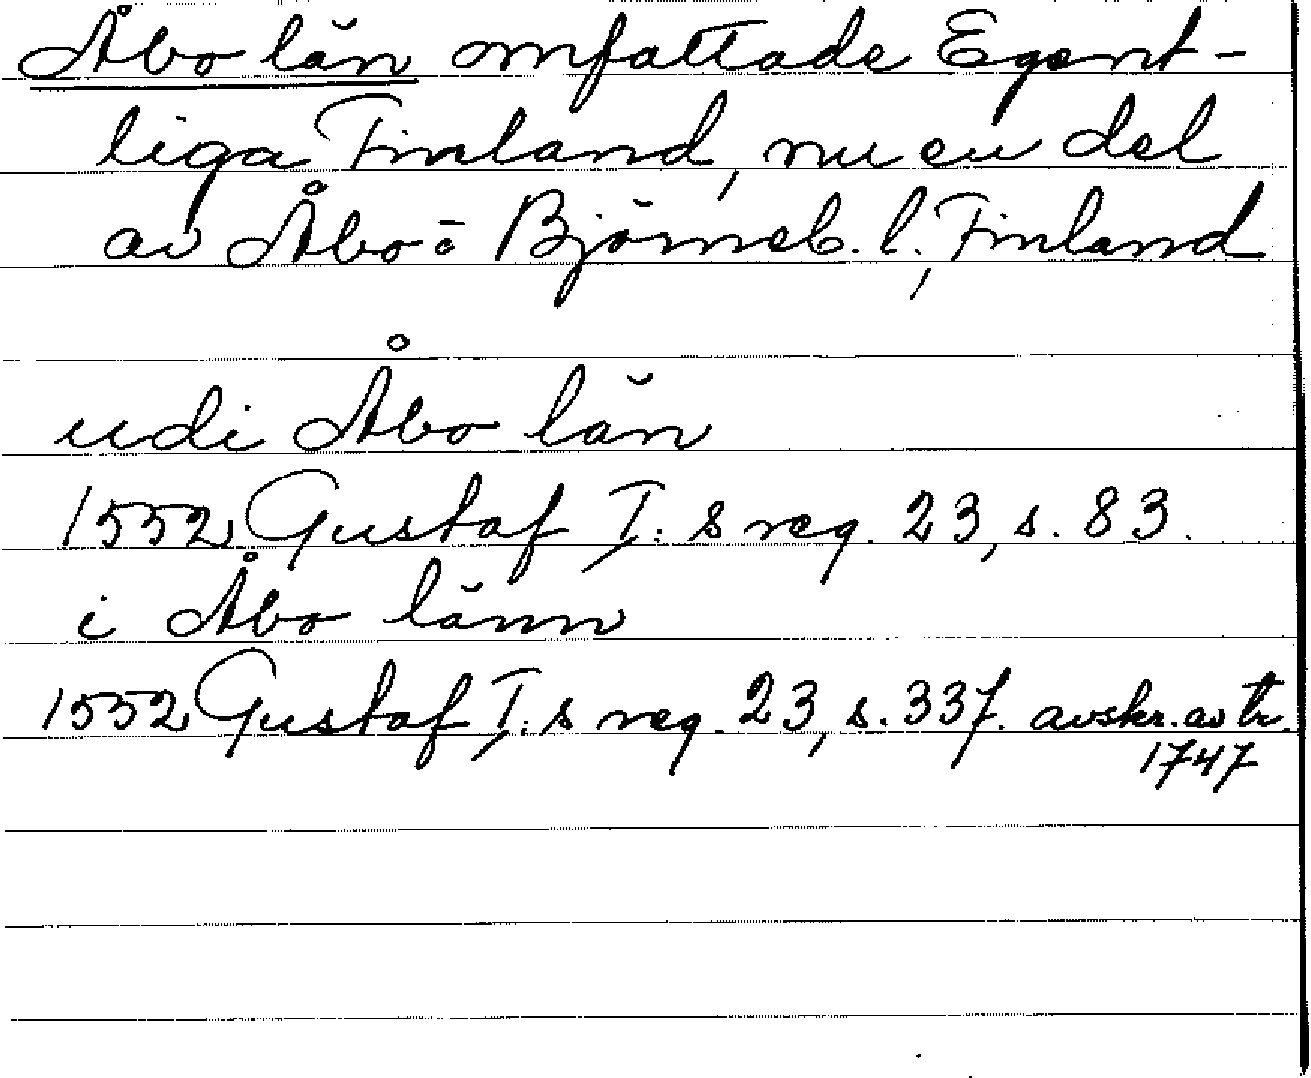 Åbo län omfattade Egent-
liga Finland, nu en del
av Åbo o Björneb. l., Finland
udi Åbo län
1552 Gustaf I:s reg. 23, s. 83.
i Åbo länn
1552 Gustaf I:s reg. 23, s. 337. avskr. av tr.
1747